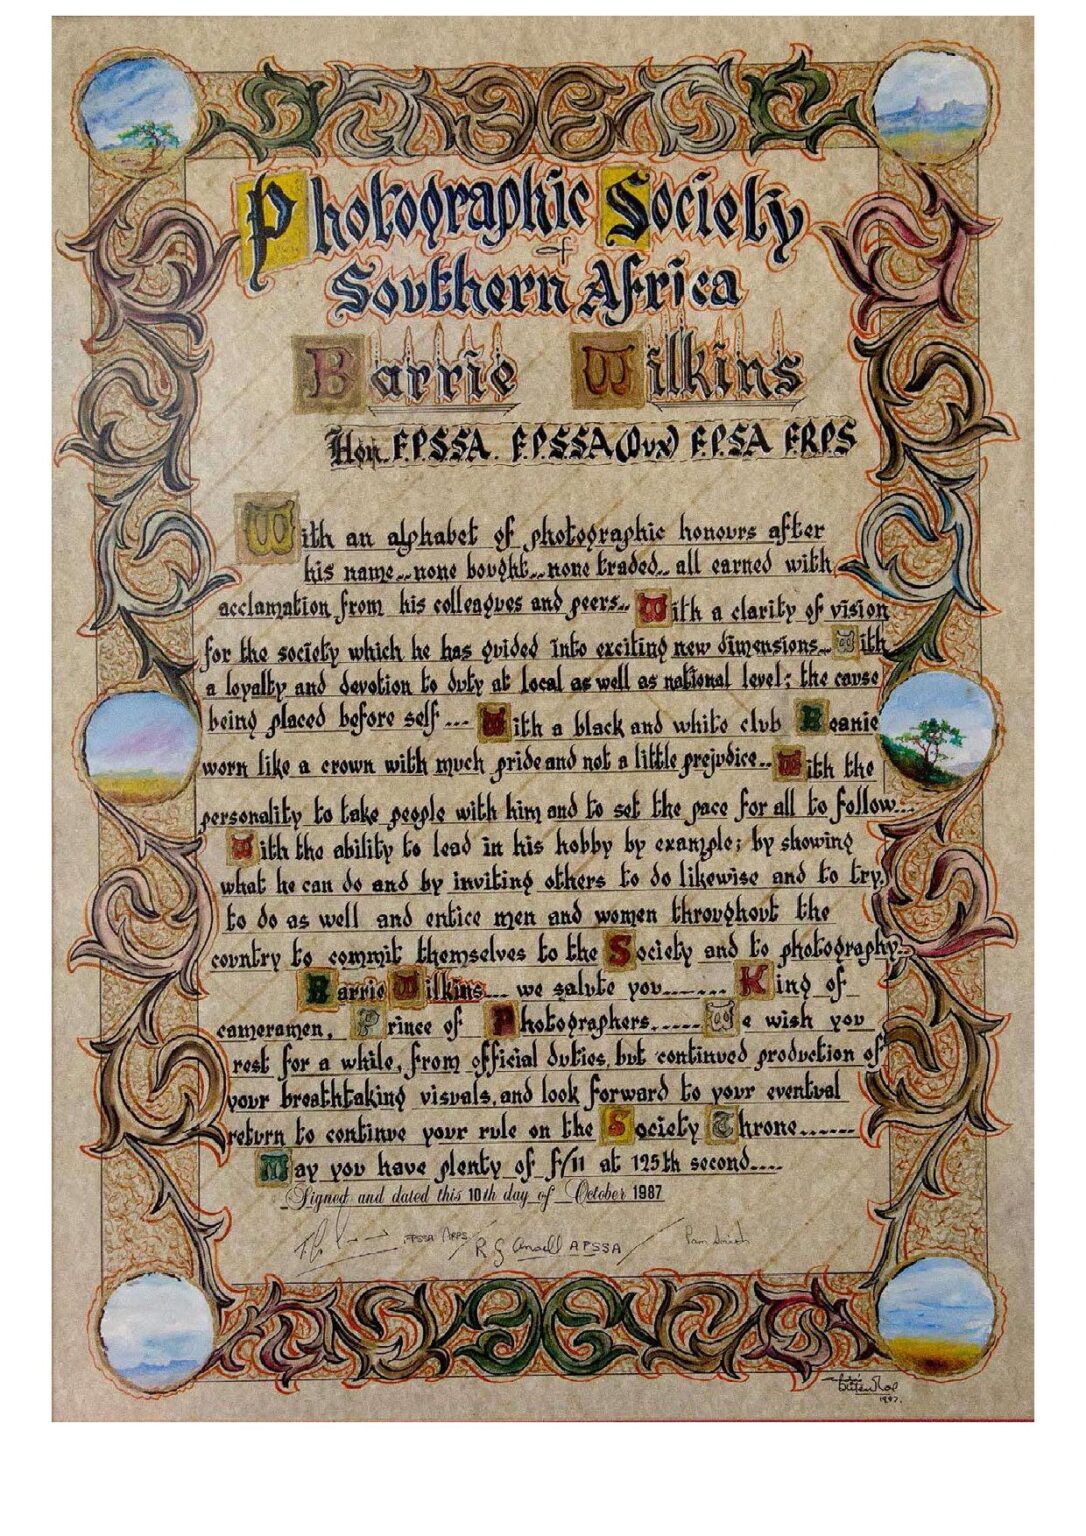 Photographic Society
of
Southern Africa
Barrie Wilkins
Hon. F.P.S.S.A. F.P.S.S.A(Dux) F.P.S.A F.R.P.S
With an alphabet of photographic honours after
his name...none bought...none traded... all earned with
acclamation from his colleagues and peers... With a clarity of vision
for the society which he has guided into exciting new dimensions... With
a loyalty and devotion to duty at local as well as national level; the cause
being placed before self... With a black and white club Beanie
worn like a crown with much pride and not a little prejudice... With the
personality to take people with him and to set the pace for all to follow...
With the ability to lead in his hobby by example; by showing
what he can do and by inviting others to do likewise and to try,
to do as well and entice men and women throughout the
country to commit themselves to the Society and to photography...
Barrie Wilkins... we salute you....... King of
cameramen, Prince of Photographers..... We wish you
rest for a while, from official duties, but continued production of
your breathtaking visuals, and look forward to your eventual
return to continue your rule on the Society Throne......
May you have plenty of f/11 at 125th second....
Signed and dated this 10th day of October 1987
FPSSA ARPS R G APSSA Pam
1987.